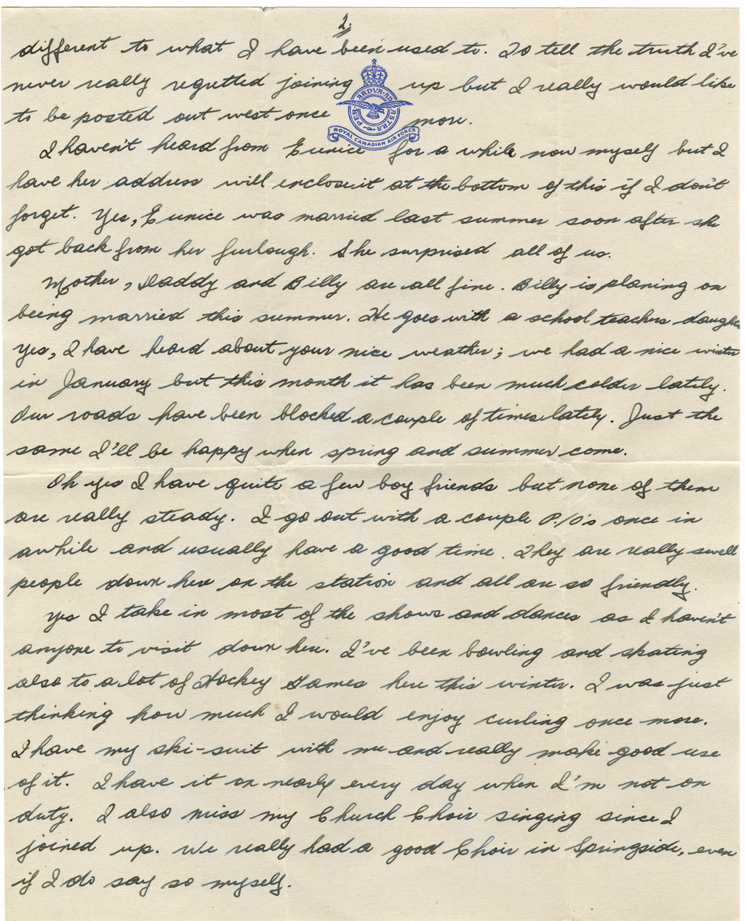 2,
different to what I have been used to. To tell the truth I've
never really regretted joining up but I really would like
to be posted out west once more.
PER ARDUA AD ASTRA
ROYAL CANADIAN AIR FORCE
I haven't heard from Eunice for a while now myself but I
have her address will enclose it at the bottom of this if I don't
forget. Yes, Eunice was married last summer soon after she
got back from her furlough. She surprised all of us.
Mother, Daddy and Billy are all fine. Billy is planing on
being married this summer. He goes with a school teachers daughter
Yes, I have heard about your nice weather; we had a nice winter
in January but this month it has been much colder lately.
Our roads have been blocked a couple of times lately. Just the
same I'll be happy when spring and summer come.
Oh yes I have quite a few boy friends but none of them
are really steady. I go out with a couple P.O's once in
awhile and usually have a good time. They are really swell
people down here on the station and all are so friendly.
Yes I take in most of the shows and dances as I haven't
anyone to visit down here. I've been bowling and skating
also to a lot of Hockey Games here this winter. I was just
thinking how much I would enjoy curling once more.
I have my ski-suit with me and really make good use
of it. I have it on nearly every day when I'm not on
duty. I also miss my Church Choir singing since I
joined up. We really had a good Choir in Springside, even
if I do say so myself.